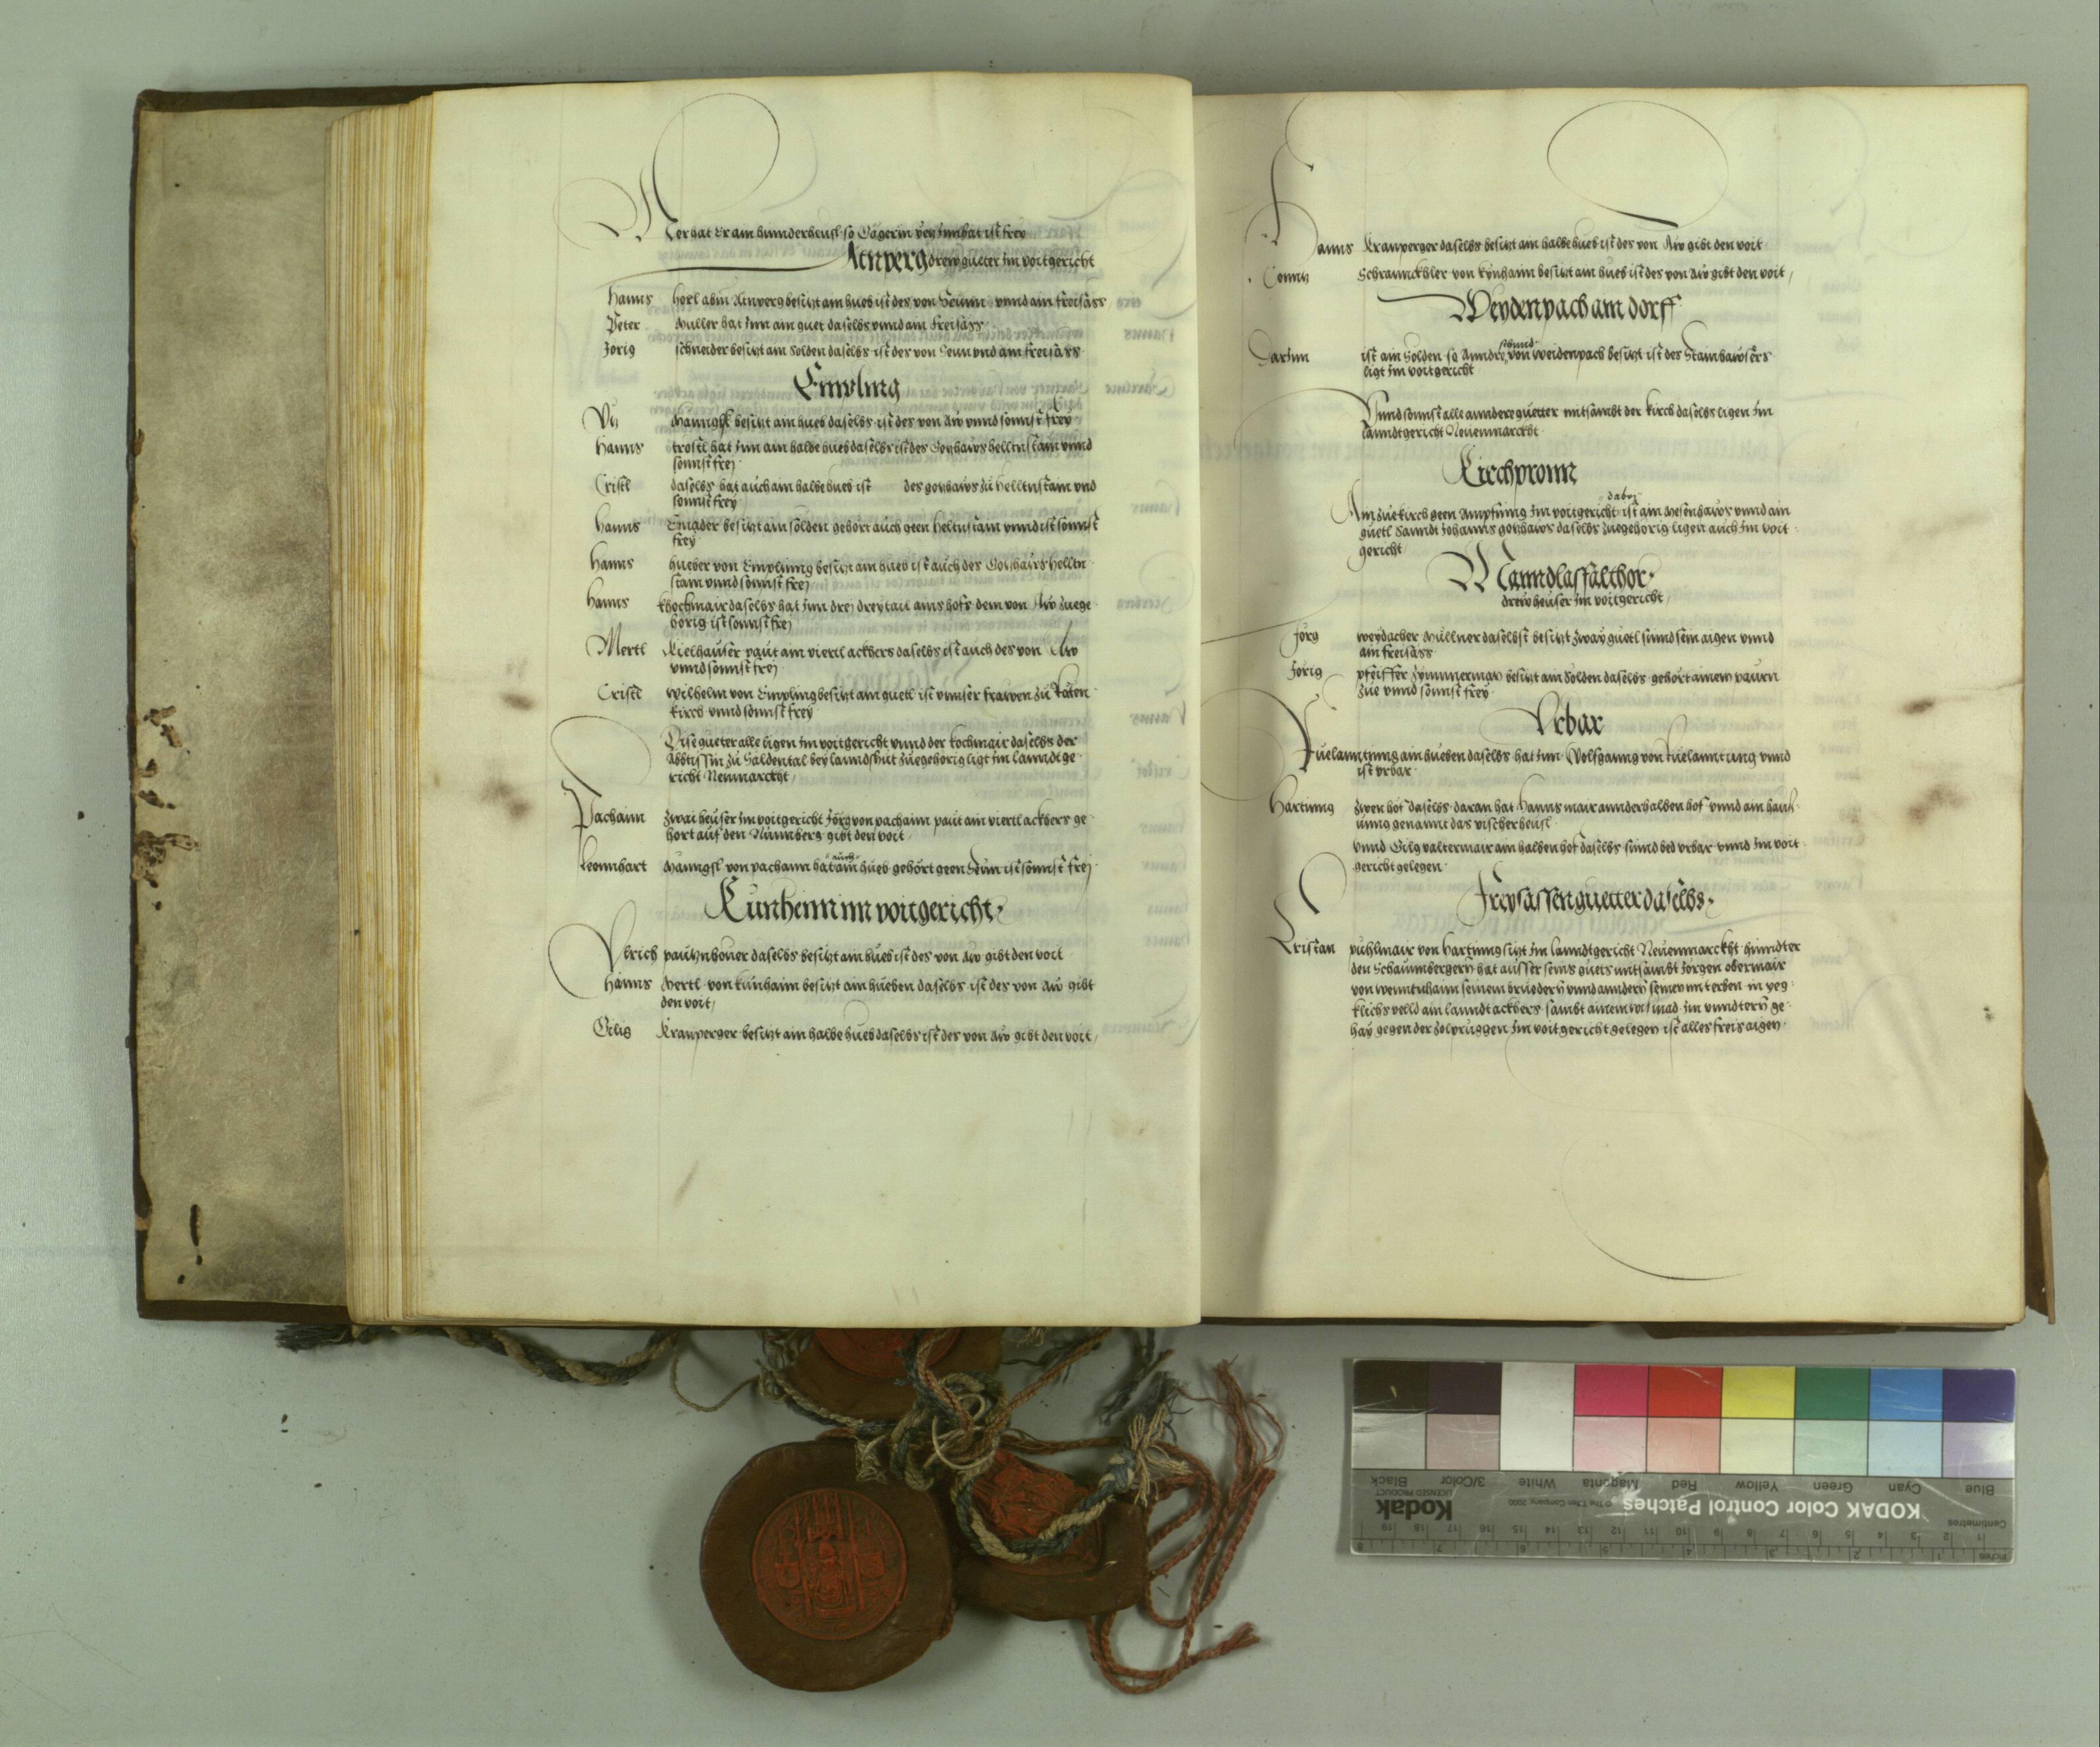 Mer hat Er ain hunnderheusl so
ist frey
Atnperg drew guetter im voitgericht
Hanns
besitzt ain hueb ist des von Seunn vnnd ain freisäss
Peter Müller hat Inn ain guet daselbs vnnd ain freisäss
Jorig schneider besitzt ain Solden daselbs ist des von Seun vnd am freisäss
Empling
besitzt ain hueb daselbs ist des von Aw vnnd sonnst frey
Hanns trostl hat Inn ain halbe hueb daselbs ist des Gotzhaws helltnstain vnnd
sonnst frej
Cristl daselbs hat auch ain halbe hueb ist des gotzhaws zu helltnstam vnd
sonnst frey
Hanns Emader besitzt ain sölden gehört auch geen heltnstam vnnd ist sonnst
frey
Hanns hueber von Emplinng besitzt ain hueb ist auch des Gotzhaws helltn
stam vnnd sonnst frej
Hanns khochmair daselbs hat Inn drej dreytail ains hofs dem von Aw zuege
hörig ist sonnst frej
Mertl Kielhauser paut am viertl ackhers daselbs ist auch des von Aw
vnnd sonnst frej
Cristl wilhelm von Emplinng besitzt ain guetl ist vnnser frawen zu Räten
kirch vnnd sonnst frey
Dise gueter alle ligen im voitgericht vnnd der kochmair daselbs der
Abbtissin zu Säldental bey lanndshut zuegehorig ligt im lanndtge
richt Neumarckht
Pachaim Zwai heuser im voitgericht Jörg von pachaim paut ain viertl ackhers ge
hört auf den Nunnberg gibt den voit
Leonnhart Manngsl von pachann hat auch ain hueb gehört geen Seun ist sonnst frej
Cunheim im voitgericht
Vlrich daselbs besitzt ain hueb ist des von Aw gibt den voit
Hanns Mertl von kunhaim besitzt ain hueben daselbs ist des von Aw gibt
den voit
Gilig Kranperger besitzt ain halbe hueb daselbs ist des von Aw gibt den voit
Hanns Kranperger daselbs besitzt ain halbe hueb ist des von Aw gibt den voit
Schrannckhler von kynhaim besitzt ain hueb ist des von Aw gibt den voit
Weydenpach am dorff
Darinn ist ain Solden so Anndre von weidenpach besitzt ist des Stainhawsers
ligt im voitgericht
Vnnd sonnst alle anndere guetter mitsambt der kirch daselbs ligen im
lanndtgericht Neuenmarckht
Kirchpronn
Ain zuekirch geen Ampfning im voitgericht dabej ist ain Mesenhaws vnnd ain
guetl Sannct Johanns gotzhaws daselbs zuegehörig ligen auch im voit
gericht
drew heuser im voitgericht
Jörg weydacher Müllner daselbst besitzt zway guetl sind sein aigen vnnd
ain freisäss
Jorig pfeiffer Zymmerman besitzt ain Solden daselbs gehört ainem paurn
zue vnnd sonnst frey
Vrbar
ain hueben daselbs hat Inn Wolfganng von vnnd
ist vrbar
Hartinng Zwen höf daselbs daran hat Hanns mair annderhalben hof vnnd ain hauß
unng genannt das vischerheusl
vnnd Gilg valtermair ain halben hof daselbs sinnd bed vrbar vnnd im voit
gericht gelegen
Freysassen guetter daselbs
Cristan pühlmair von Hartinng sitzt im lanndtgericht Neuenmarckht hinndter
den Schaumbergern hat ausser seins guets mitsambt Jörgen obermair
von seinem bruedern vnnd anndern seinen miterben in yeg
klichs velld ain lanndt ackhers sambt ainem wismad im vnndtern ge
hay gegen der zolpruggen im voitgericht gelegen ist alles freis aigen
KODAK Color Control Patches
Kodak
LICENSED PRODUCT
© The Tiffen Company, 2000
Blue Cyan Green Yellow Red Magenta White 3/Color Black
Centimetres
Inches